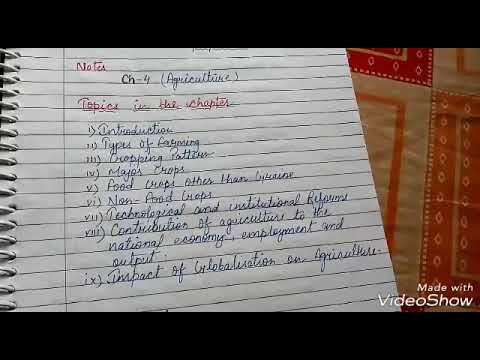 Notes
Ch-4 (Agriculture)
Topics in the chapter
i) Introduction
ii) Types of farming
iii) Cropping Pattern
iv) Major Crops
v) Food Crops other than Grains
vi) Non-Food Crops
vii) Technological and institutional Reforms
viii) Contribution of agriculture to the
national economy, employment and
output.
ix) Impact of Globalisation on Agriculture.
Made with
VideoShow